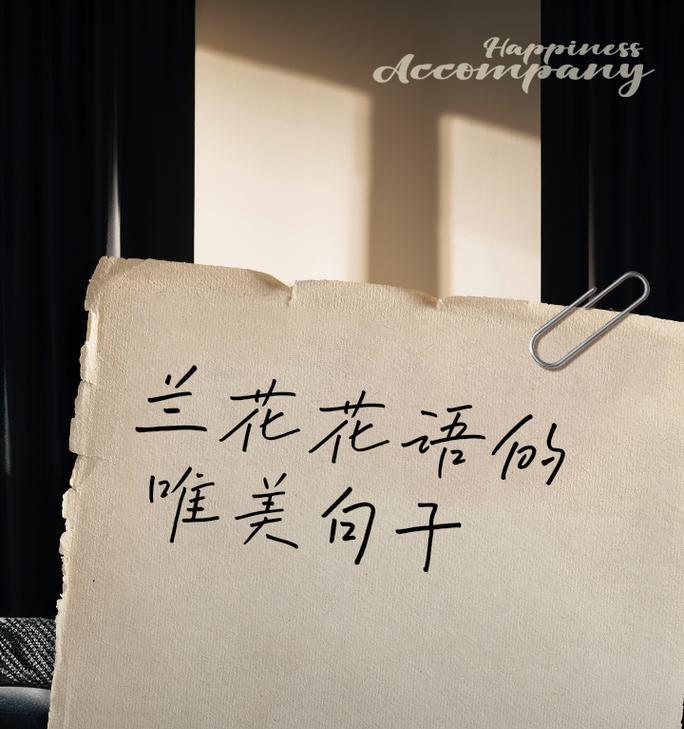 Happiness
Accompany
兰花花语的
唯美句子